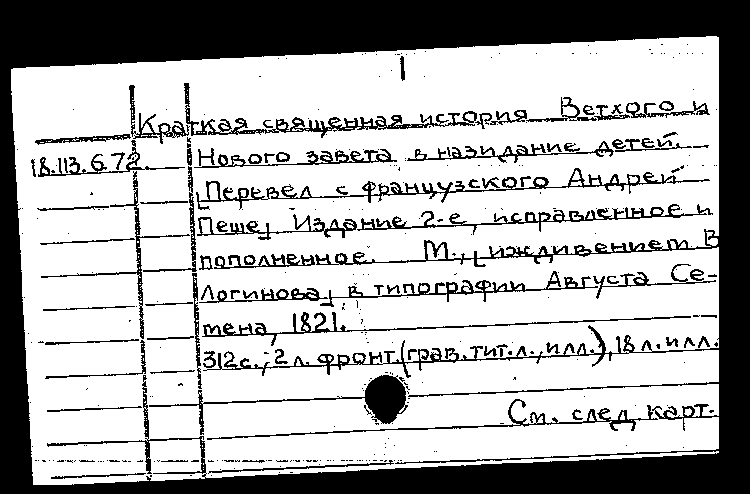 Краткая священная история Ветхого и
18.113.6.72. Нового завета в назидание детей.
[Перевел с французского Андрей
Пеше] Издание 2-е, исправленное и
пополненное. М., [иждивением В
Логинова] в типографии Августа Се-
мена, 1821.
312 с.; 2 л. фронт.(грав.тит.л.,илл.), 18 л. илл.
См. след. карт.